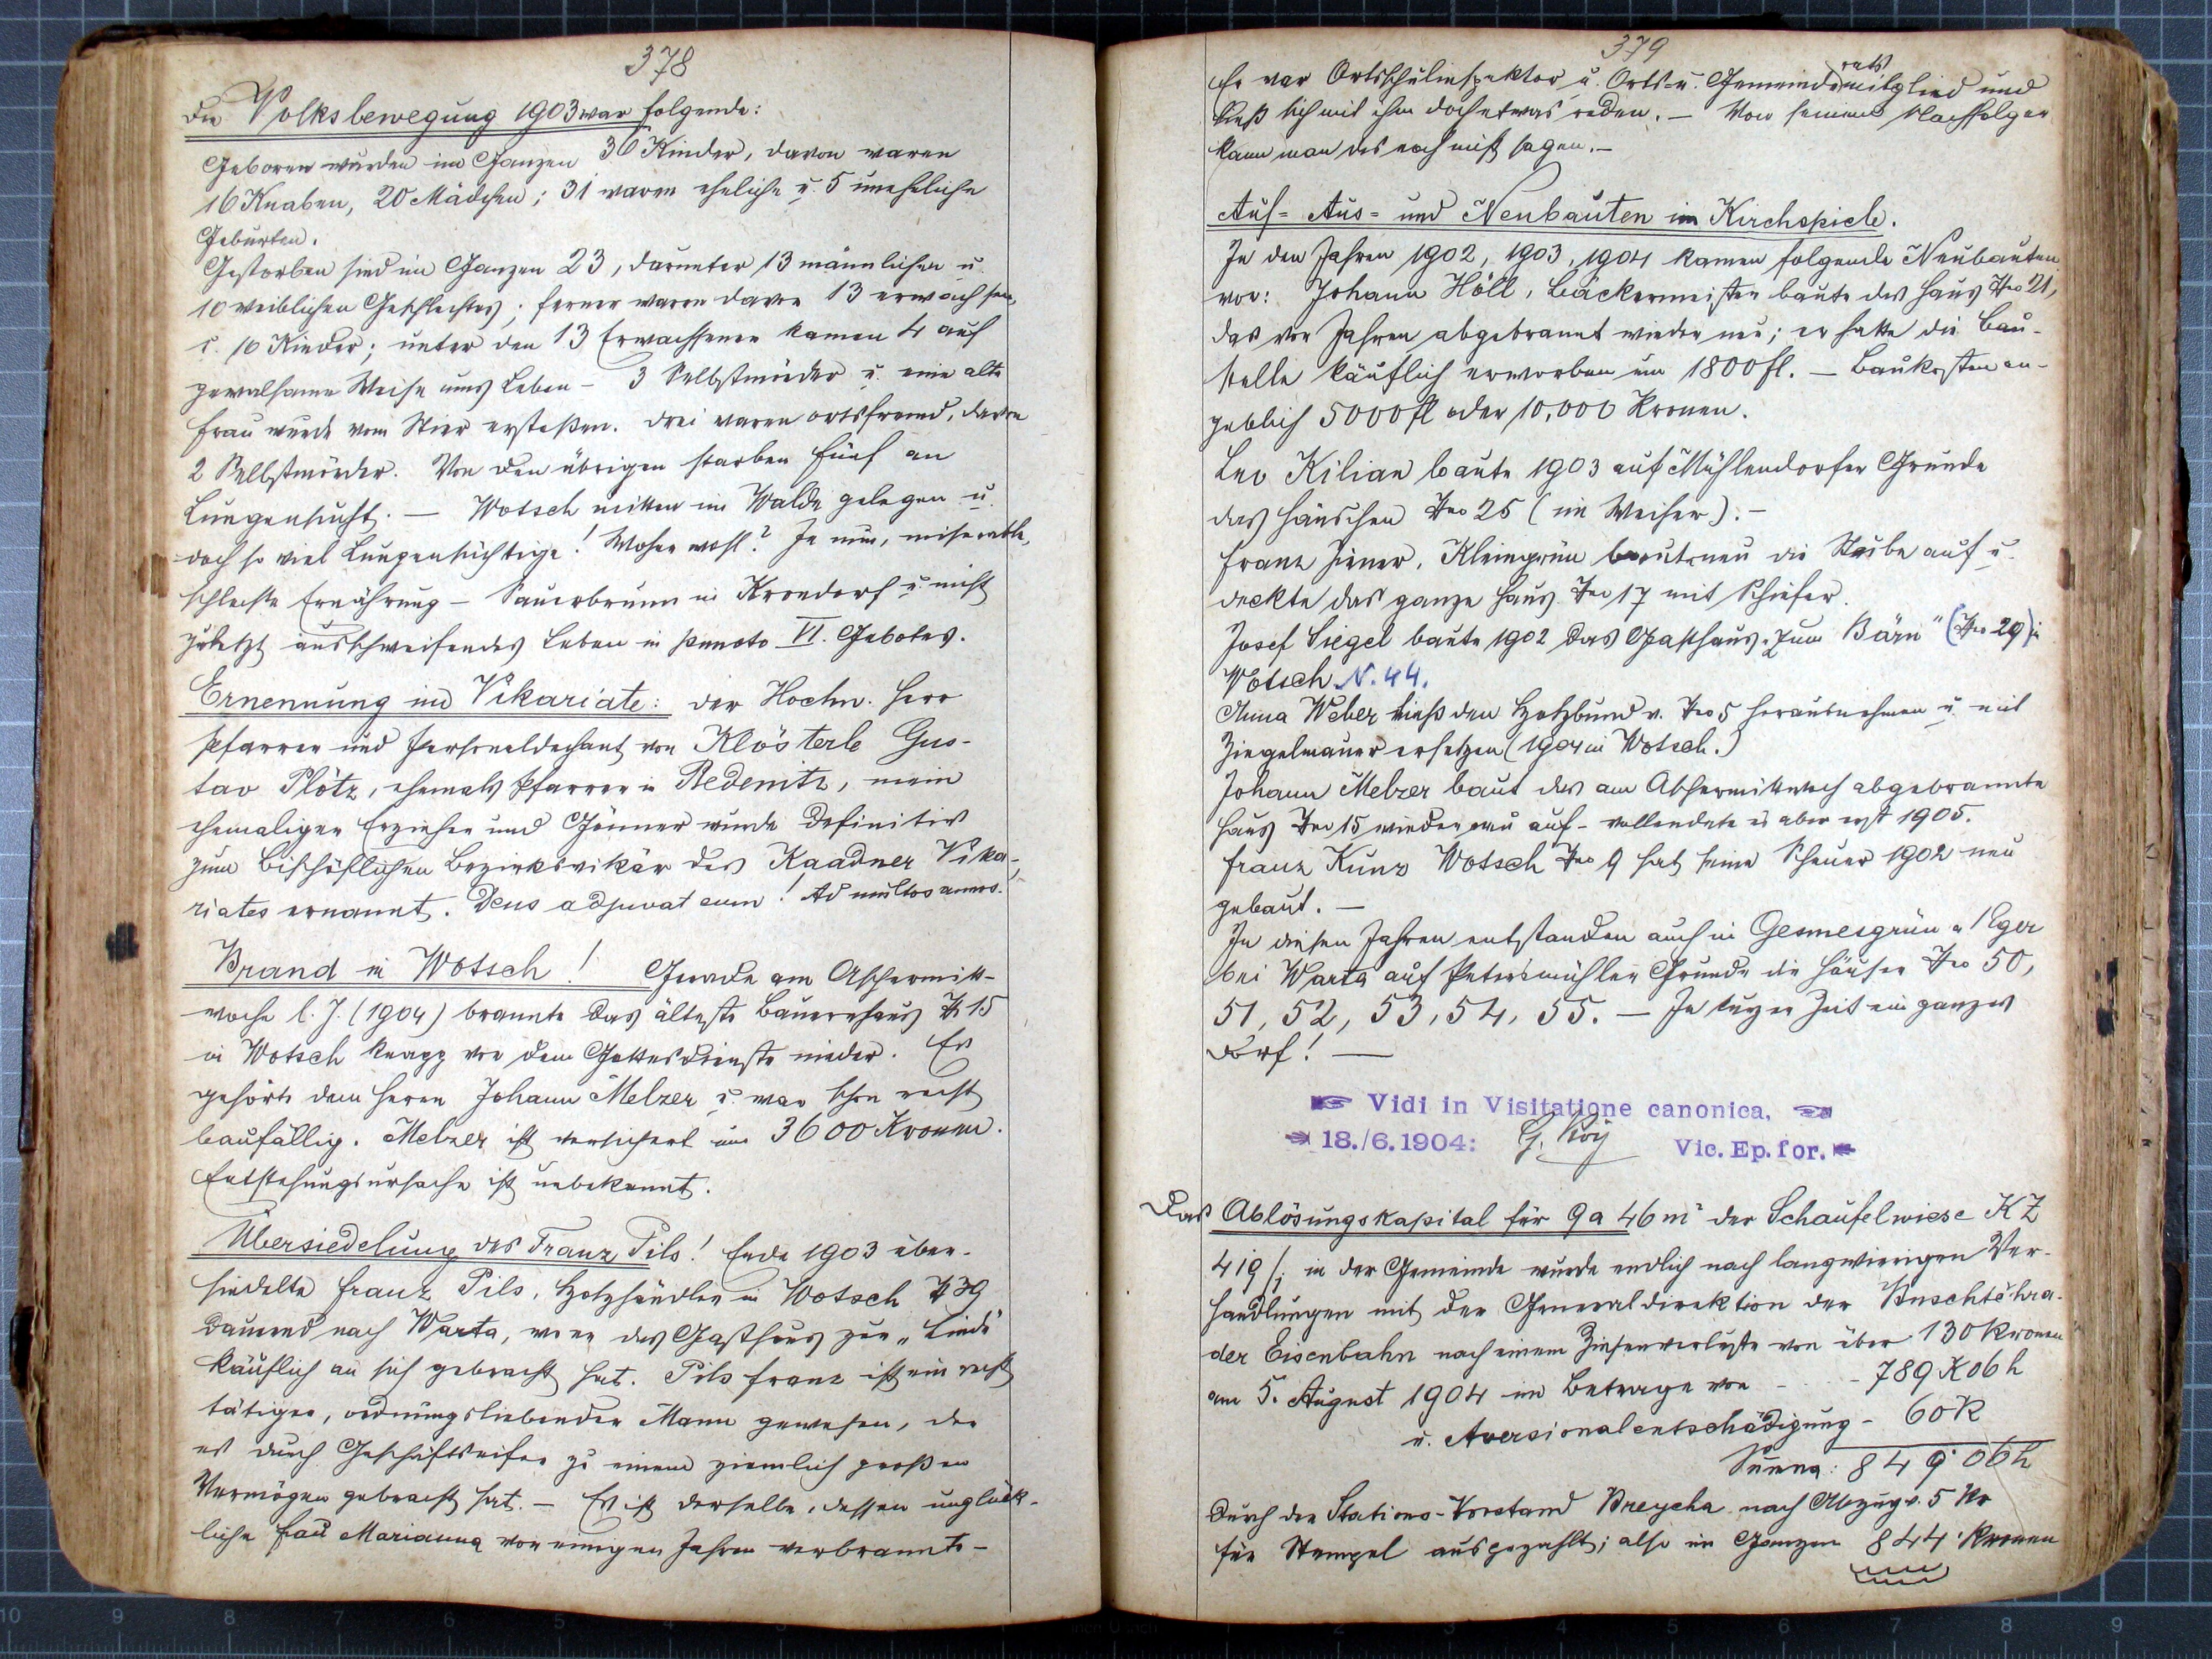 378
Die Volksbewegung 1903 war folgende:
Geboren wurden im Ganzen 36 Kinder, davon waren
16 Knaben, 20 Mädchen; 31 waren eheliche u. 5 uneheliche
Geburten.
Gestorben sind im Ganzen 23, darunter 13 männlichen u.
10 weiblichen Geschlechtes; ferner waren davon 13 erwachsen,
u. 10 Kinder; unter den 13 Erwachsenen kamen 4 auf
gewalsame Weise ums Leben - 3 Selbstmörder u. eine alte
Frau wurde vom Stier erstoßen. Drei waren ortsfremd, davon
2 Selbstmörder. Von den übrigen starben fünf an
Lungensucht. — Wotsch mitten im Walde gelegen u.
doch so viel Lungensüchtige! Woher wohl? Je nun, miserable,
schlechte Ernährung - Sauerbrunn in Krondorf u. nicht
zuletzt ausschweifendes Leben in puncto VI. Gebotes.
Ernennung im Vikariate: Der Hochw. Herr
Pfarrer und Personaldechant von Klösterle Gus-
tav Plötz, ehemals Pfarrer in Redenitz, mein
ehemaliger Erzieher und Gönner wurde definitiv
zum bischöflichen Bezirksvikär des Kaadner Vika-
riates ernannt. Deus adjuvat eum! Ad multos annos.
Brand in Wotsch! Gerade am Aschermitt-
woche l. J. (1904) brannte das älteste Bauernhaus № 15
in Wotsch knapp vor dem Gottesdienste nieder. Es
gehörte dem Herrn Johann Melzer u. war schon recht
baufällig. Melzer ist versichert um 3600 Kronen.
Entstehungsursache ist unbekannt.
Übersiedelung des Franz Pils! Ende 1903 über-
siedelte Franz Pils, Holzhändler in Wotsch № 39
dauernd nach Warta, wo er das Gasthaus zur „Linde"
käuflich an sich gebracht hat. Pils Franz ist ein recht
tätiger, ordnungsliebender Mann gewesen, der
es durch Geschäftseifer zu einem ziemlich großen
Vermögen gebracht hat. — Es ist derselbe, dessen unglück-
liche Frau Marianna vor einigen Jahren verbrannte -
379
Er war Ortsschulinspektor u. Orts- u. Gemeinderatsmitglied und
ließ sich mit ihm doch etwas reden. — Von seinem Nachfolger
kann man das noch nicht sagen. —
Auf= Aus= und Neubauten im Kirchspiele.
In den Jahren 1902, 1903, 1904 kamen folgende Neubauten
vor: Johann Höll, Bäckermeister baute das Haus Nro 21,
das vor Jahren abgebrannt wieder neu; er hatte die Bau-
stelle käuflich erworben um 1800 fl. — Baukosten an-
geblich 5000 fl oder 10,000 Kronen.
Leo Kilian baute 1903 auf Mühlendorfer Grunde
das Häuschen Nro 25 (im Weiher). —
Franz Kleingrün baute neu die Stube auf u.
deckte das ganze Haus Nro 17 mit Schiefer.
Josef Siegel baute 1902 das Gasthaus „Zum Bärn" (Nro 29) in
Wotsch N. 44.
Anna Weber ließ den Holzbund v. Nro 5 herausnehmen u. mit
Ziegelmauer ersetzen (1904 in Wotsch.)
Johann Melzer baut das am Aschermittwoch abgebrannte
Haus Nro 15 wieder neu auf - vollendete es aber erst 1905.
Franz Kunz Wotsch Nro 9 hat seine Scheuer 1902 neu
gebaut. —
In diesen Jahren entstanden auch in Gesmesgrün a/Eger
bei Warta auf Petersmühler Grunde die Häuser Nro 50,
51, 52, 53, 54, 55. — In kurzer Zeit ein ganzes
Dorf! —
Vidi in Visitatione canonica,
18./6.1904: Vic. Ep. for.
Das Ablösungskapital für 9a 46 m² der Schaufelwiese KZ
419/1 in der Gemeinde wurde endlich nach langwierigen Ver-
handlungen mit der Generaldirektion der Buschtěhra-
der Eisenbahn nach einem Zinsenverluste von über 130 Kronen
am 5. August 1904 im Betrage von - - - 789 K 06 h
u. Aversionalentschädigung - 60 K
Summa: 849 06 h
Durch den Stations-Vorstand Breycha nach Abzug v. 5 Kr
für Stempel ausgezahlt; also im Ganzen 844 Kronen